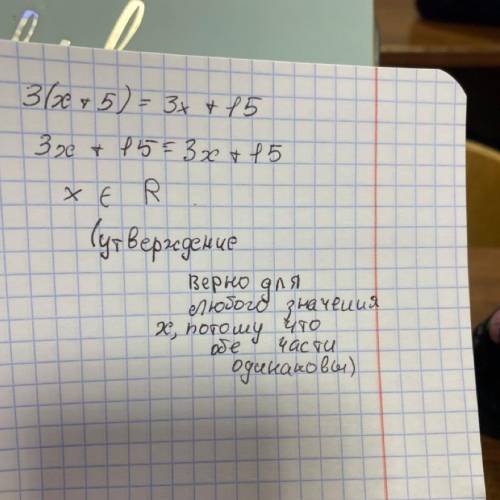 3(x + 5) = 3x + 15
3x + 15 = 3x + 15
x ∈ R
(утверждение
верно для
любого значения
x, потому что
обе части
одинаковы)